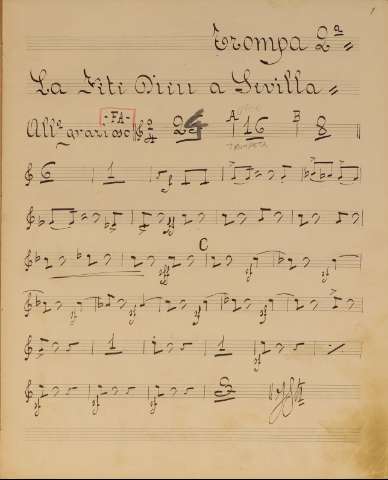 1
Trompa 2ª
La Fête Dieu a Sevilla
All.º grazioso -FA- 24 A 16 B 8
TROMPETA
6 1
C
1 1
3 V.S.